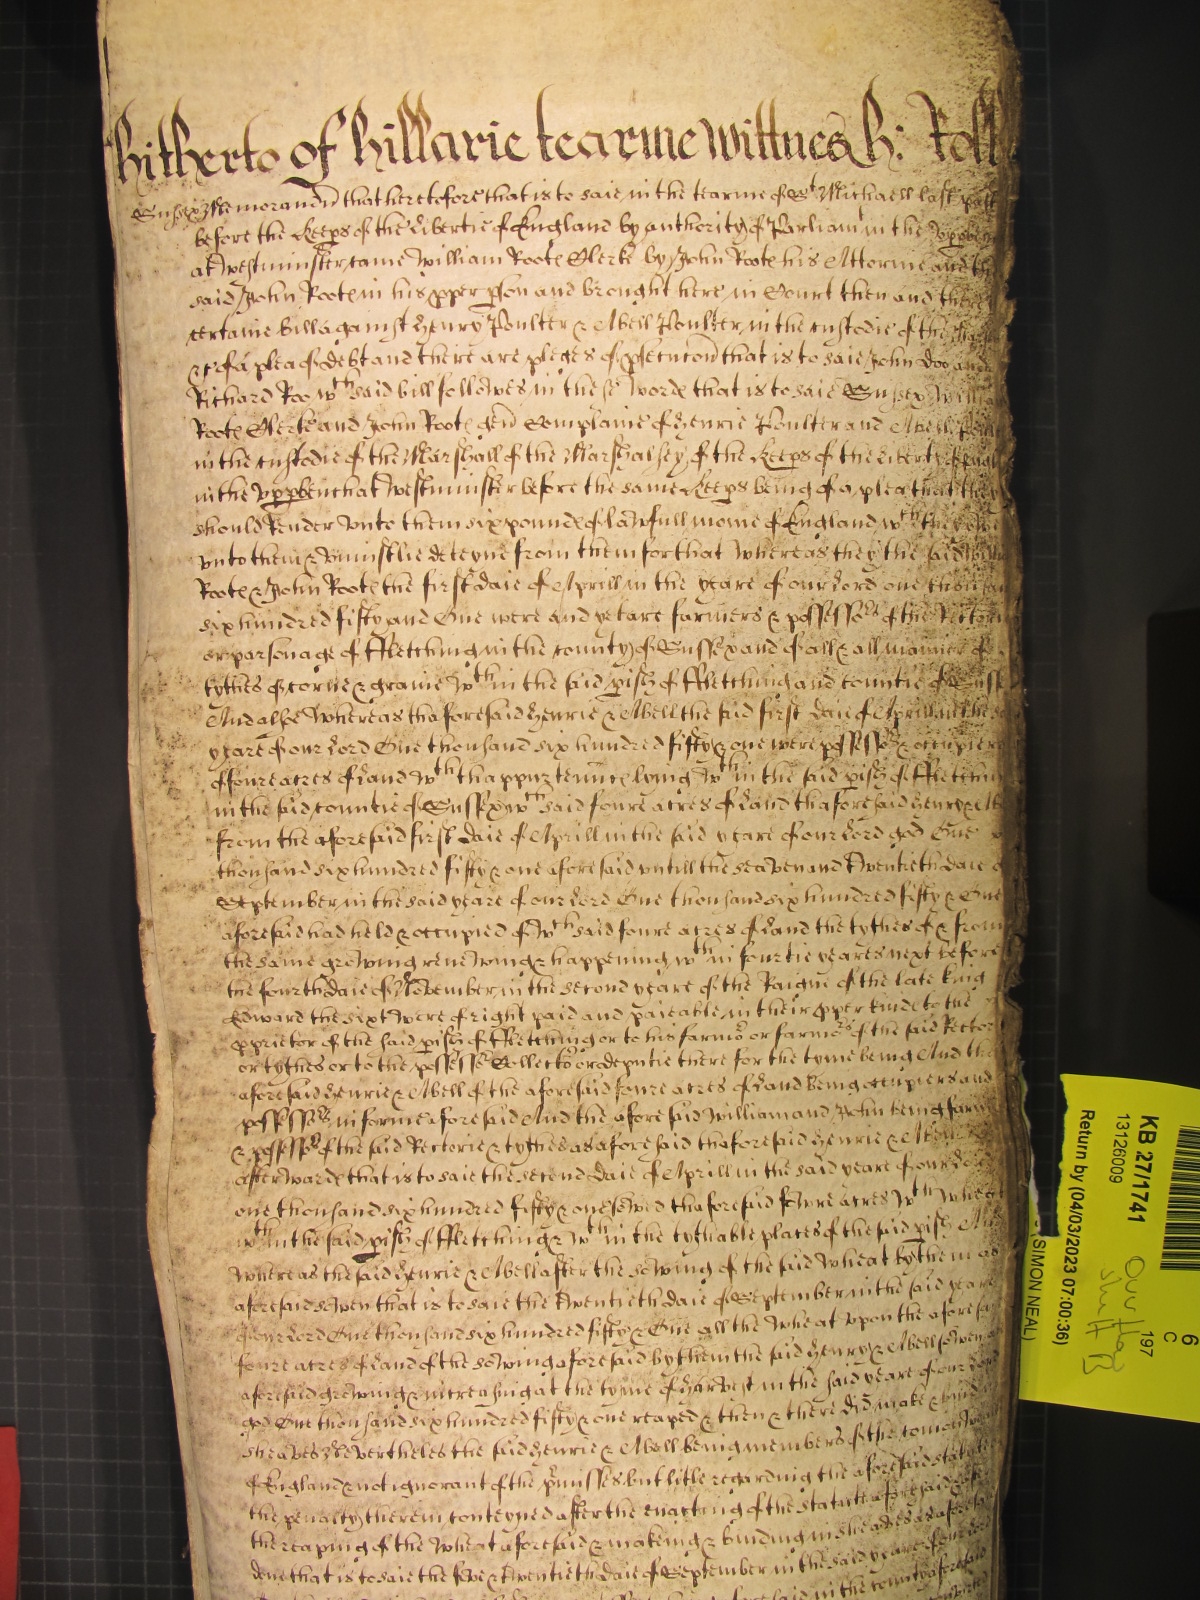 hitherto of hillarie tearme wittnes h: Roll
Sussex Memorand that heretofore that is to saie, in the tearme of St Michaell last past
before the Keeps of the libertie of England by authority of Parliamt in the Upp
at Westminster, came William Roote Clerke by John Roote his Attornie and the
said John Roote in his pper pson and brought here in Court then and there
certaine bill against Henry Poulter & Abell Poulter, in the custodie of the
&c of a plea of debt and there are pleges of psecucon that is to saie John Doo and
Richard Roo wth said bill followes in these words that is to saie Sussex
Roote Clerke and John Roote gen Complaine of Henrie Poulter and Abell
in the custodie of the Marshall of the Marshalsey of the Keeps of the liberty of
in the uppbench at Westminster before the same Keeps being of a plea that they
should Render unto them six pounds of lawfull monie of England wch they
unto them & uniustlie deteyne from them for that Whereas they the said
Roote & John Roote the first daie of Aprill in the yeare of our Lord one thousand
six hundred fifty and One were and yet are farmers & possessors of the Rectorie
or parsonage of ffletching in the county of Sussex and of all & all manner of
tythes of corne & graine wth in the said pish of ffletching and countie of
And alsoe Whereas thaforesaid Henrie & Abell the said first daie of Aprill in the
yeare of our Lord One thousand six hundred fifty & one were possessors & occupiers
of foure acres of Land wth thappurtennces lying wth in the said pish of ffletching
in the said countie of Sussex wch said foure acres of Land thaforesaid Henry &
from the aforesaid first daie of Aprill in the said yeare of our Lord god One
thousand six hundred fifty & one aforesaid untill the seaven and Twentieth daie of
September, in the said yeare of our Lord One thousand six hundred fifty & One
aforesaid had held & occupied of wch said foure acres of Land the tythes of & from
the same growing renewing & happening wth in fourtie yeares next before
the fourth daie of November, in the second yeare of the Raigne of the late King
Edward the sixt were of right paid and paieable in their pper kinde to the
pprietor of the said pish of ffletching or to his farmor or farmors of the said Rector
or tythes or to the possessor Collector or deputie there for the tyme being And the
aforesaid Henrie & Abell of the aforesaid foure acres of Land being occupiers and
possessors in forme aforesaid And the aforesaid William and John being
& possessors of the said Rectorie & tythes as aforesaid thaforesaid Henrie &
afterwards that is to saie the second daie of Aprill in the said yeare of our Lord
one thousand six hundred fifty & one sowed thaforesaid foure acres wth wheat
wth in the said pish of ffletching & wth in the tythable places of the said pish And
Whereas the said Henrie & Abell after the sowing of the said Wheat by them as
aforesaid sowen that is to saie the Twentieth daie of September in the said yeare
of our Lord One thousand six hundred fifty & One all the Wheat upon the aforesaid
foure acres of Land of the sowing aforesaid by them the said Henry & Abell sowen
aforesaid growing & increasing at the tyme of Harvest in the said yeare of our Lord
god One thousand six hundred fifty & one reaped & then & there did make & bind
sheaves Nevertheles the said Henrie & Abell being members of the
of England & not ignorant of the pmisses but litle regarding the aforesaid statute
the penalty therein conteyned after the enacting of the statute aforesaid
the reaping of the Wheat aforesaid & makeing & binding in sheaves as aforesaid
done that is to saie the five & Twentieth daie of September in the said yeare of our Lord
in the county aforesaid
KB 27/1741
13126009
Return by (04/03/2023 07:00:36)
(SIMON NEAL)
6
C
197